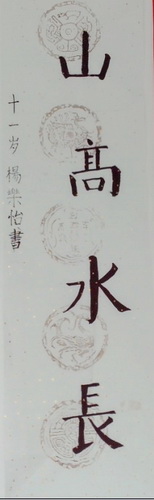 山高水長
十一岁 楊樂怡書